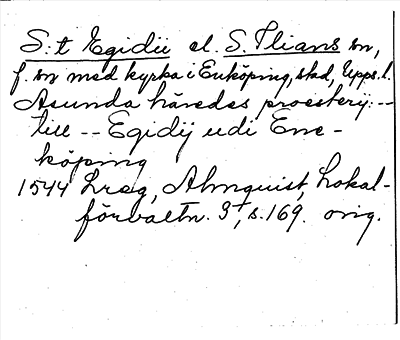 S:t Egidii el. S. Ilians sn,
f. sn med kyrka i Enköping, stad, Upps. l.
Asunda häredes prosterij: --
till -- Egidij udi Ene-
köping
1544 Lreg, Almquist, Lokal-
förvaltn. 3, s. 169. orig.